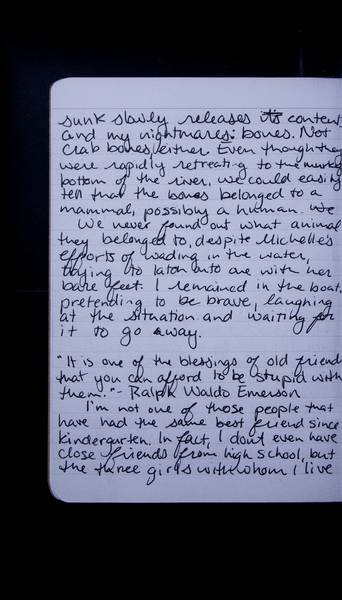 sunk slowly releases its content
and my nightmares: bones. Not
crab bones, either. Even though they
were rapidly retreating to the murky
bottom of the river, we could easily
tell that the bones belonged to a
mammal, possibly a human. We
We never found out what animal
they belonged to, despite Michelle's
efforts of wading in the water,
trying to latch onto one with her
bare feet. I remained in the boat,
pretending to be brave, laughing
at the situation and waiting for
it to go away.
"It is one of the blessings of old friend
that you can afford to be stupid with
them." - Ralph Waldo Emerson
I'm not one of those people that
have had the same best friend since
kindergarten. In fact, I don't even have
close friends from high school, but
the three girls with whom I live